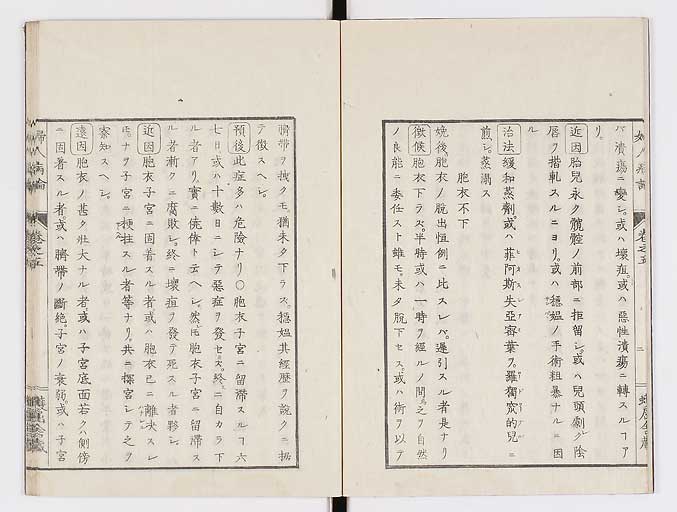 ハ潰瘍ニ變シ。或ハ壞疽。或ハ惡性潰瘍ニ轉スルコアリ。
近因胎兒永ク髖腔ノ前部ニ拒留シ。或ハ兒頭劇ク陰
唇ヲ揩軋スルニヨリ。或ハ穩媼ノ手術粗暴ナルニ因
ル
治法緩和蒸劑。或ハ菲阿斯失亞謨葉ヲ。羅獨肏的兒ニ
煎シ。蒸溻ス
胞衣不下
娩後胞衣ノ脫出恒例ニ比スレバ。遷引スル者是ナリ
徵候胞衣下ラス。半時或ハ一時ヲ經ルノ間。之ヲ自然
ノ良能ニ委任スト雖モ。未タ脫下セス。或ハ術ヲ以テ
臍帶ヲ拽クモ。猶未タ下ラス。穩媼其經歷ヲ說クニ据
テ徵スヘシ。
預後此症多ハ危險ナリ〇胞衣子宮ニ留滯スルコ六
七日或ハ十數日ニシテ惡症ヲ發セス。終ニ自カラ下
ル者アリ。實ニ僥倖ト云ヘシ。然𪜈胞衣子宮ニ留滯ス
ル者漸クニ腐敗シ。終ニ壞疽ヲ發テ死スル者夥シ
近因胞衣子宮ニ固着スル者或ハ胞衣已ニ離決スレ
𪜈。ナヲ子宮ニ梗拄スル者等ナリ。共ニ探宮シテ之ヲ
察知スヘシ。
遠因胞衣ノ甚タ壯大ナル者。或ハ子宮底面若クハ側傍
ニ固着スル者。或ハ臍帶ノ斷絕。子宮ノ衰弱。或ハ子宮